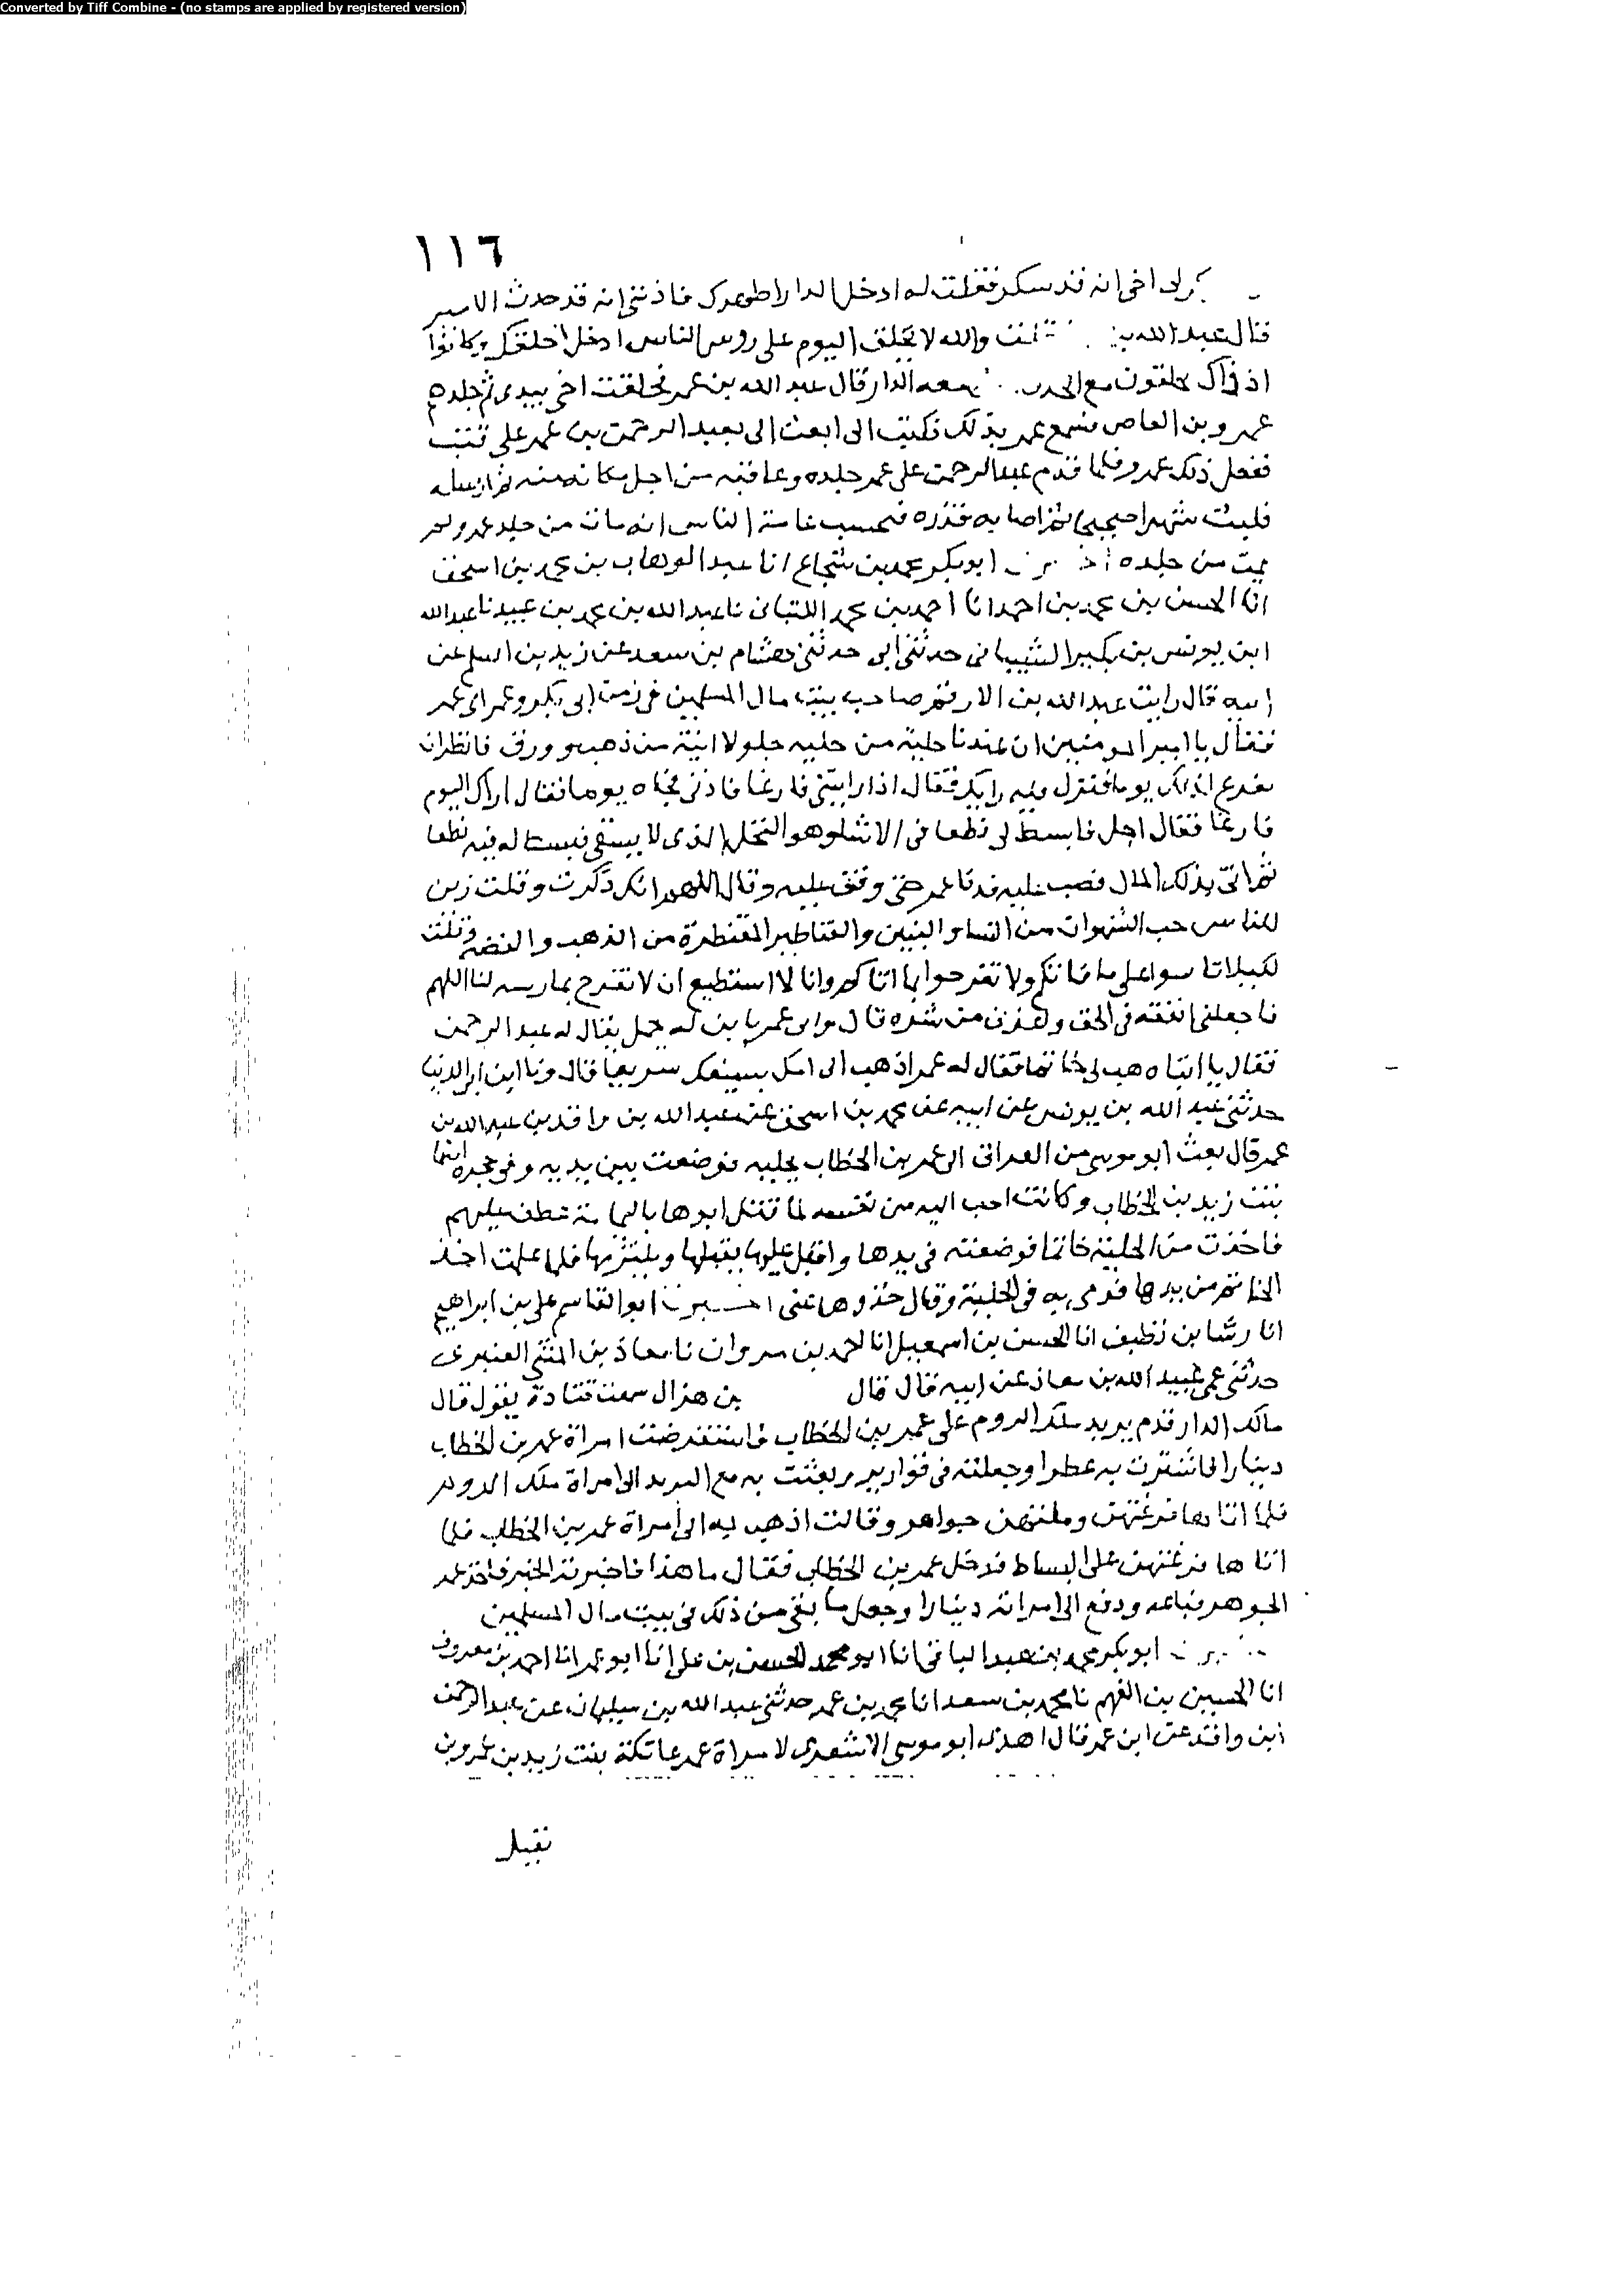 Converted by Tiff Combine - (no stamps are applied by registered version)
١١٦
لى اخى انه قد سكر فقلت له ادخل الدار اطهرك فاذننى انه قد حدث الامير
فقال عبد الله فقلت والله لا تحلق اليوم على روس الناس ادخل احلقك وكانوا
اذ ذاك يحلقون مع الحدود معه الدار قال عبد الله بن عمر فحلقت اخى بيدى ثم جلدهم
عمرو بن العاص فسمع عمر بذلك فكتب الى ابعث الى بعبد الرحمن بن عمر على قتب
ففعل ذلك عمرو فلما قدم عبد الرحمن على عمر جلده وعاقبه من اجل مكانه منه ثم ارسله
فلبث شهرا صحيحا ثم اصابه قدره فحسب عامة الناس انه مات من جلد عمر ولم
يمت من جلده ابو بكر محمد بن شجاع انا عبد الوهاب بن محمد بن اسحق
انا الحسن بن محمد بن احمد انا احمد بن محمد اللنبانى نا عبد الله بن محمد بن عبيد نا عبد الله
ابن يونس بن بكير الشيبانى حدثنى ابى حدثنى هشام بن سعد عن زيد بن اسلم عن
ابيه قال رايت عبد الله بن الارقم صاحب بيت مال المسلمين فى زمن ابى بكر وعمر اتى عمر
فقال يا امير المومنين ان عندنا حلية من حلية جلولا انية من ذهب وورق فانظر ان
تفرغ لذلك يوما فترى فيه رايك فقال اذا رايتنى فارغا فاذنى فجاه يوما فقال اراك اليوم
فارغا فقال اجل فابسط لى نطعا فى الاشا وهو النخل الذى لا يسقى فبسط له فيه نطعا
ثم اتى بذلك المال فصب عليه فدنا عمر حتى وقف عليه وقال اللهم انك ذكرت وقلت زين
للناس حب الشهوات من النسا والبنين والقناطير المقنطرة من الذهب والفضة وقلت
لكيلا تاسوا على ما فاتكم ولا تفرحوا بما اتاكم وانا لا استطيع ان لا نفرح بما زينت لنا اللهم
فاجعلنى انفقه فى الحق واعذنى من شره قال واتى عمر بابن له يحمل يقال له عبد الرحمن
فقال يا ابتاه هب لى خاتما فقال له عمر اذهب الى امك تسقيك سويقا قال ونا ابن ابى الدنيا
حدثنى عبد الله بن يونس عن ابيه عن محمد بن اسحق عن عبد الله بن واقد بن عبد الله بن
عمر قال بعث ابو موسى من العراق الى عمر بن الخطاب بحلية فوضعت بين يديه وفى حجره اسما
بنت زيد بن الخطاب وكانت احب اليه من نفسه لما قتل ابوها باليمامة عطف عليهم
فاخذت من الحلية خاتما فوضعته فى يدها واقبل عليها يقبلها ويلتزمها فلما غفلت اخذ
الخاتم من يدها فرمى به فى الحلية وقال خذوها عنى اخبرنا ابو القاسم على بن ابراهيم
انا رشا بن نظيف انا الحسن بن اسمعيل انا احمد بن مروان نا معاذ بن المثنى العنبرى
حدثنى عمى عبيد الله بن معاذ عن ابيه قال قال بن هزال سمعت قتادة يقول قال
مالك الدار قدم بريد ملك الروم على عمر بن الخطاب فاستقرضت امراة عمر بن الخطاب
دينارا فاشترت به عطرا وجعلته فى قوارير وبعثت به مع البريد الى امراة ملك الروم
فلما اتاها فرغتهن وملتهن جواهر وقالت اذهب به الى امراة عمر بن الخطاب فلما
اتاها فرغتهن على البساط فدخل عمر بن الخطاب فقال ما هذا فاخبرته الخبر فاخذ عمر
الجوهر فباعه ودفع الى امراته دينارا وجعل ما بقى من ذلك فى بيت مال المسلمين
ابو بكر محمد بن عبد الباقى انا ابو محمد الحسن بن على انا ابو عمر انا احمد بن معروف
انا الحسين بن الفهم نا محمد بن سعد انا محمد بن عمر حدثنى عبد الله بن سليمان عن عبد الرحمن
ابن واقد عن ابن عمر قال اهدى ابو موسى الاشعرى لامراة عمر عاتكة بنت زيد بن عمرو بن
نفيل